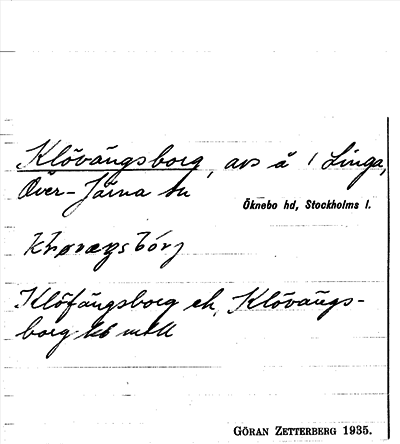 Klövängsborg, avs å 1 Linga,
Över-Järna sn
Öknebo hd, Stockholms l.
Klöfängsborg ek, Klövängs-
borg kb mtl
GÖRAN ZETTERBERG 1935.